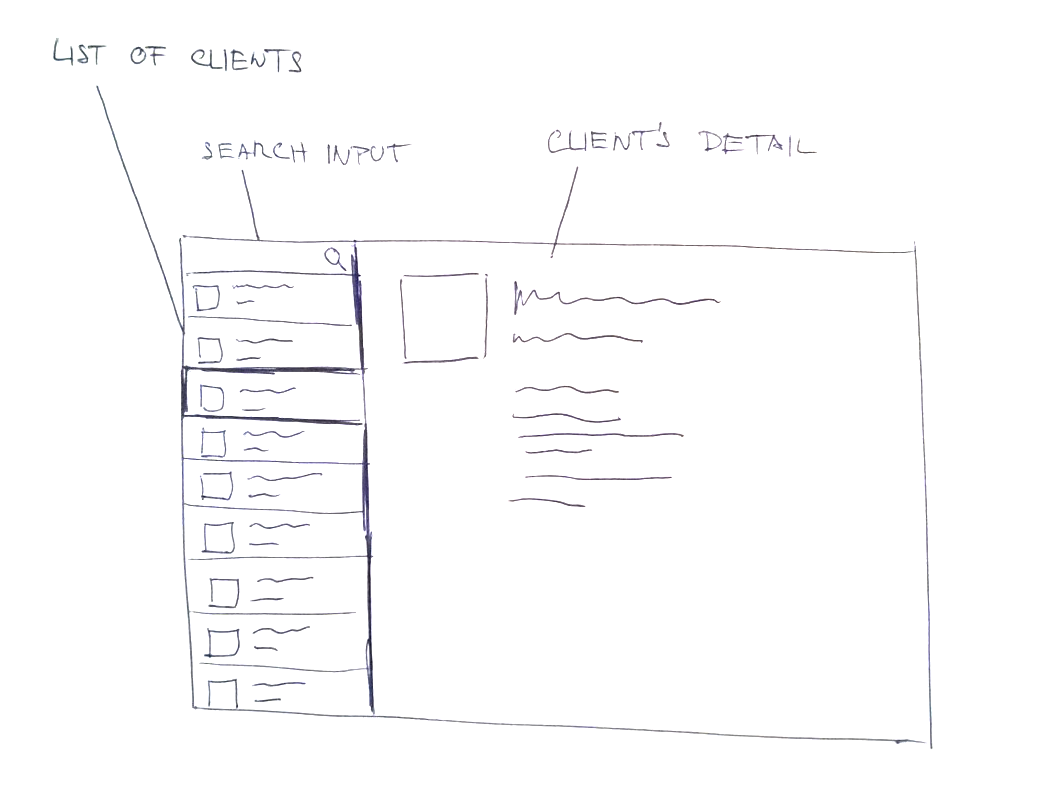 LIST OF CLIENTS
SEARCH INPUT
CLIENT'S DETAIL